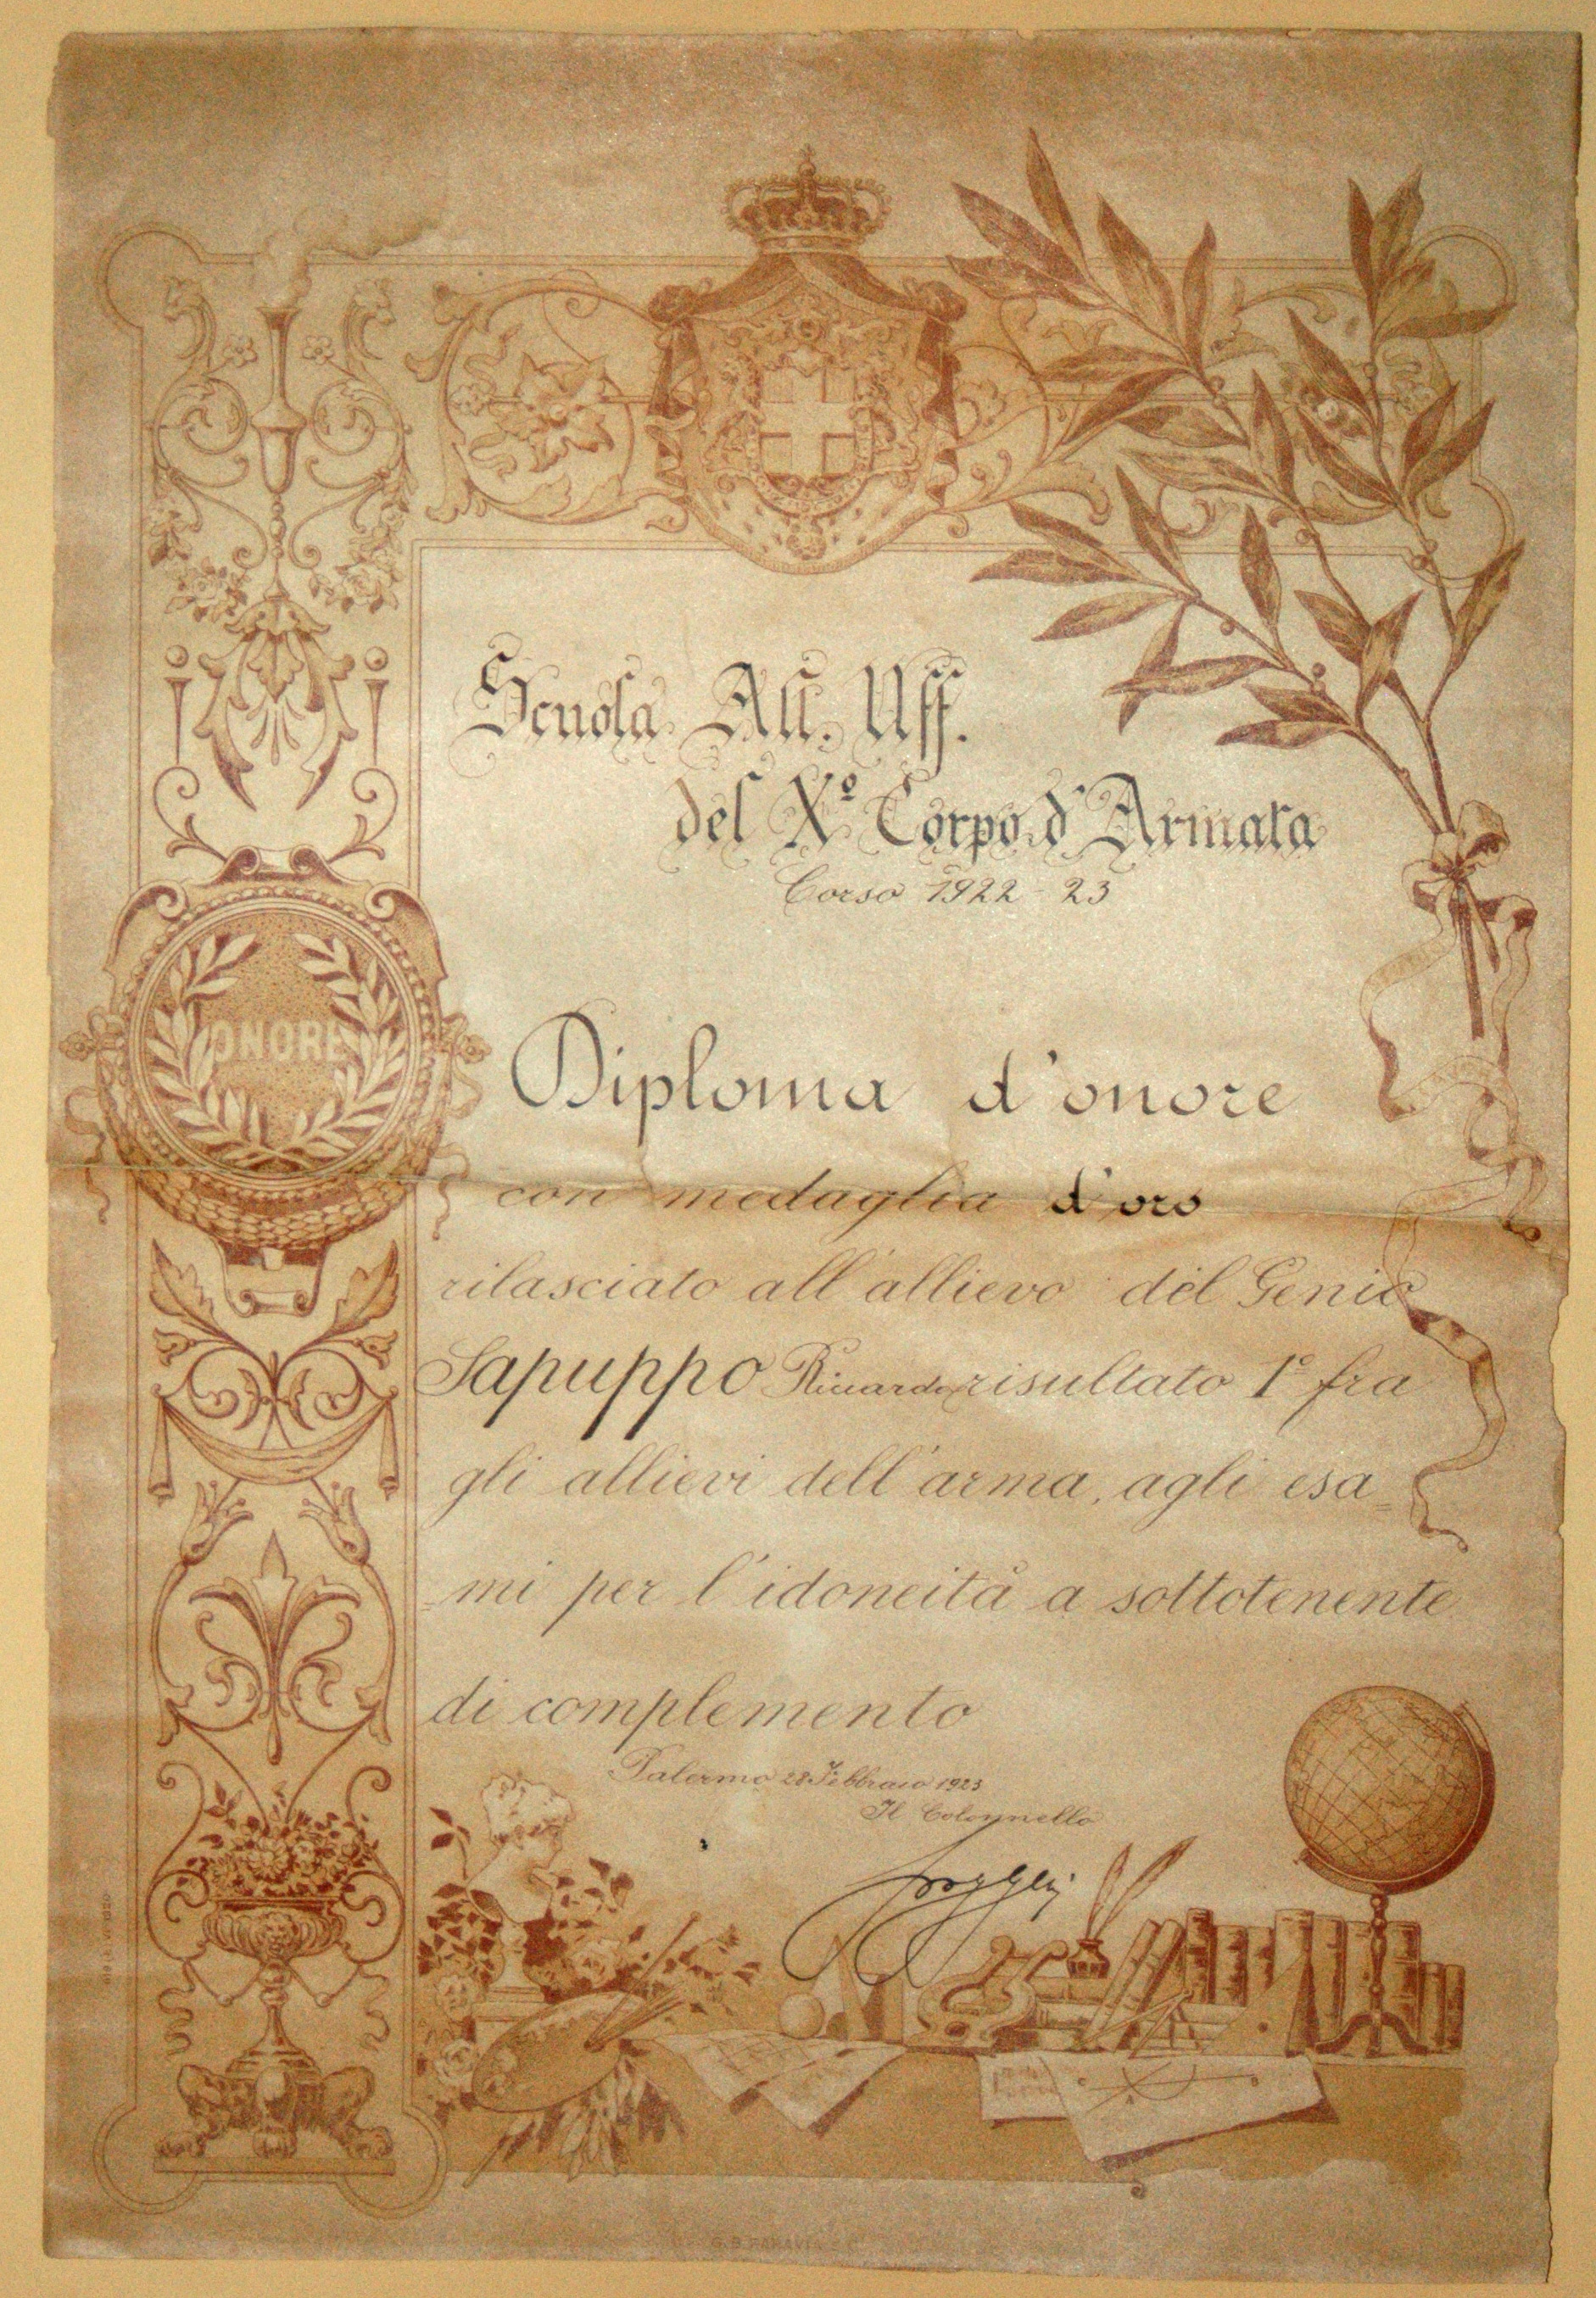 Scuola All. Uff.
del Xº Corpo d'Armata
Corso 1922-23
ONORE
Diploma d'onore
con medaglia d'oro
rilasciato all'allievo del Genio
Sapuppo Riccardo risultato 1º fra
gli allievi dell'arma, agli esa=
=mi per l'idoneità a sottotenente
di complemento
Palermo 28 Febbraio 1923
Il Colonnello
G. B. PARAVIA